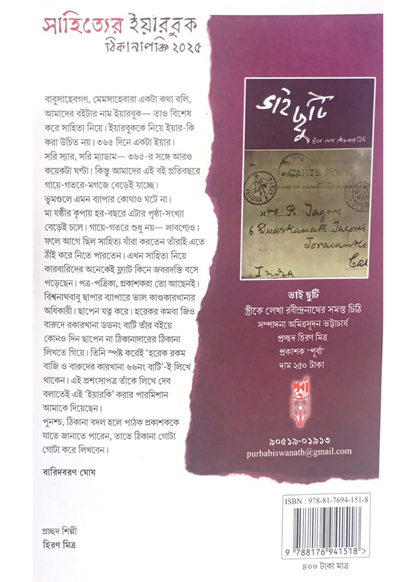 সাহিত্যের ইয়ারবুক
ঠিকানাপঞ্জি ২০২৫
বাবুসাহেবগণ, মেমসাহেবারা একটা কথা বলি,
আমাদের বইটার নাম ইয়ারবুক— তাও বিশেষ
করে সাহিত্য নিয়ে। ইয়ারবুককে নিয়ে ইয়ার-কি
করা উচিত নয়। ৩৬৫ দিনে একটা ইয়ার।
সরি স্যার, সরি ম্যাডাম— ৩৬৫-র সঙ্গে আরও
কয়েকটা ঘণ্টা! কিন্তু আমাদের এই বই প্রতিবছরে
গায়ে-গতরে-মগজে বেড়েই যাচ্ছে।
ভূমণ্ডলে এমন ব্যাপার কোথাও ঘটে না।
মা ষষ্ঠীর কৃপায় হর-বছরে এটার পৃষ্ঠা-সংখ্যা
বেড়েই চলে। গায়ে-গতরে শুধু নয়— লাবণ্যেও।
ফলে আগে ছিল সাহিত্য যাঁরা করতেন তাঁরাই এতে
ঠাঁই করে নিতে পারতেন। এখন সাহিত্য নিয়ে
কারবারিদের অনেকেই ফ্ল্যাট কিনে জবরদস্তি বসে
পড়েছেন। পত্র-পত্রিকা, প্রকাশকরা তো আছেনই।
বিশ্বনাথবাবু ছাপার ব্যাপারে ভাল কাণ্ডকারখানার
অধিকারী। ছাপেন যত্ন করে। হরেকর কমবা জিও
বারুদে রকারখানা ডডনং বাটি তাঁর বইয়ে
কোনও দিন ছাপেন না ঠিকানাদারের ঠিকানা
লিখতে গিয়ে। তিনি স্পষ্ট করেই 'হরেক রকম
বাজি ও বারুদের কারখানা ৬৬নং বাটি'-ই লিখে
থাকেন। এই প্রশংসাপত্র তাঁকে লিখে দেব
বলাতেই এই 'ইয়ারকি' করার পারমিশান
আমাকে দিয়েছেন।
পুনশ্চ, ঠিকানা বদল হলে পাঠক প্রকাশককে
যাতে জানাতে পারেন, তাতে ঠিকানা গোটা
গোটা করে লিখবেন।
বারিদবরণ ঘোষ
প্রচ্ছদ শিল্পী
হিরণ মিত্র
ভাই ছুটি
CARTE POSTALE
Mrs R. Tagore
6 Dwarkanath Tagore
Jorasanko
Cal
India
ভাই ছুটি
স্ত্রীকে লেখা রবীন্দ্রনাথের সমস্ত চিঠি
সম্পাদনা অমিত্রসূদন ভট্টাচার্য
প্রচ্ছদ হিরণ মিত্র
প্রকাশক 'পূর্বা'
দাম ২৫০ টাকা
পূর্বা
৯০৫১৯-০১৯১৩
purbabiswanath@gmail.com
ISBN : 978-81-7694-151-8
9 788176 941518 >
৪০০ টাকা মাত্র